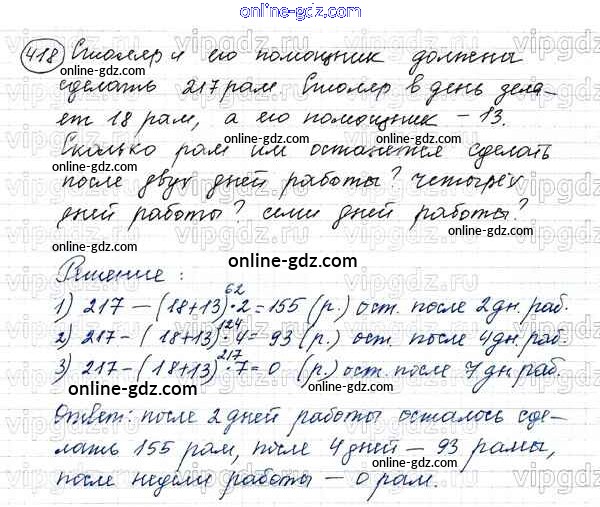 online-gdz.com
418 Столяр и его помощник должны
сделать 217 рам. Столяр в день дела-
ет 18 рам, а его помощник - 13.
Сколько рам им останется сделать
после двух дней работы? четырёх
дней работы? семи дней работы?
online-gdz.com
Решение:
62
1) 217 - (18+13)·2 = 155 (р.) ост. после 2 дн. раб.
124
2) 217 - (18+13)·4 = 93 (р.) ост. после 4 дн. раб.
217
3) 217 - (18+13)·7 = 0 (р.) ост. после 7 дн раб.
online-gdz.com
Ответ: после 2 дней работы осталось сде-
лать 155 рам, после 4 дней - 93 рамы,
после недели работы - 0 рам.
online-gdz.com